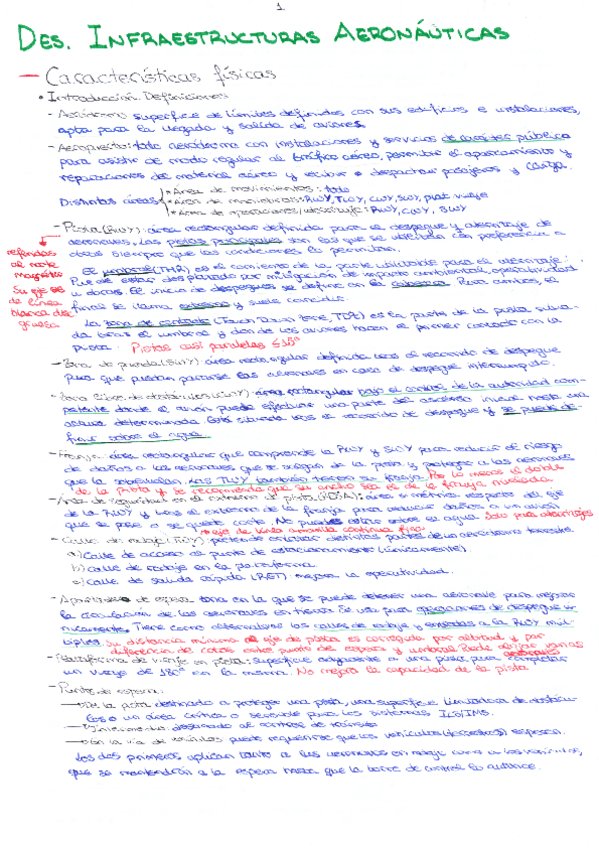 1
DES. INFRAESTRUCTURAS AERONÁUTICAS
— Características físicas
• Introducción. Definiciones
- Aeródromo: superficie de límites definidos con sus edificios e instalaciones,
apta para la llegada y salida de aviones.
- Aeropuerto: todo aeródromo con instalaciones y servicios de carácter público
para asistir de modo regular al tráfico aéreo, permitir el aparcamiento y
reparaciones de material aéreo y recibir o despachar pasajeros y carga.
Distintas áreas
• Área de movimientos: todo
• Área de maniobras: RWY, TWY, CWY, SWY, plat. viraje
• Área de operaciones/aterrizaje: RWY, CWY, SWY
- Pista (RWY): área rectangular definida para el despegue y aterrizaje de
aeronaves. Las pistas principales son las que se utilizan con preferencia a
otras siempre que las condiciones lo permitan.
referidas
al norte
magnético
Su eje es
de línea
blanca
gruesa
El umbral (THR) es el comienzo de la parte utilizable para el aterrizaje.
Puede estar desplazado por mitigación de impacto ambiental, operatividad
u otros. El inicio de despegues se define en la cabecera. Para ambos, el
final se llama extremo y suele coincidir.
La zona de contacto (Touch Down Zone, TDZ) es la parte de la pista situa-
da tras el umbral y donde los aviones hacen el primer contacto con la
pista. Pistas casi paralelas ≤15°
- Zona de parada (SWY): área rectangular definida tras el recorrido de despegue
para que puedan pararse las aeronaves en caso de despegue interrumpido.
- Zona libre de obstáculos (CWY): área rectangular bajo el control de la autoridad com-
petente donde el avión puede efectuar una parte del ascenso inicial hasta una
altura determinada. Está situada tras el recorrido de despegue y se puede de-
finir sobre el agua.
- Franja: área rectangular que comprende la RWY y SWY para reducir el riesgo
de daños a las aeronaves que se salgan de la pista y proteger a las aeronaves
que la sobrevuelan. Las TWY también tienen su franja. Por lo menos el doble
de la pista y se recomienda que su ancho sea el de la franja nivelada.
- Área de seguridad en el extremo de pista (RESA): área simétrica respecto del eje
de la RWY y tras el extremo de la franja para reducir daños a un avión
que se pase o se quede corto. No puede estar sobre el agua. Solo para aterrizajes
- Calle de rodaje (TWY): eje de línea amarilla continua fino
a) Calle de acceso al puesto de estacionamiento (únicamente).
b) Calle de rodaje en la plataforma.
c) Calle de salida rápida (RET): mejora la operatividad.
- Apartadero de espera: zona en la que se puede detener una aeronave para mejorar
la circulación de las aeronaves en tierra. Se usa para operaciones de despegue
Tiene como alternativas las calles de rodaje y entradas a la RWY múl-
tiples. Su distancia mínima al eje de pista es corregida por altitud y por
diferencia de cotas entre punto de espera y umbral. Puede alojar varias
aeronaves
- Plataforma de viraje en pista: superficie adyacente a una pista para completar
un viraje de 180° en la misma. No mejora la capacidad de la pista
- Puntos de espera:
→ De la pista: destinado a proteger una pista, una superficie limitadora de obstácu-
los o un área crítica o sensible para los sistemas ILS/MLS.
→ Intermedio: destinado al control de tránsito
→ En la vía de vehículos: puede requerirse que los vehículos (terrestres) esperen.
Los dos primeros aplican tanto a las aeronaves en rodaje como a los vehículos,
que se mantendrán a la espera hasta que la torre de control lo autorice.